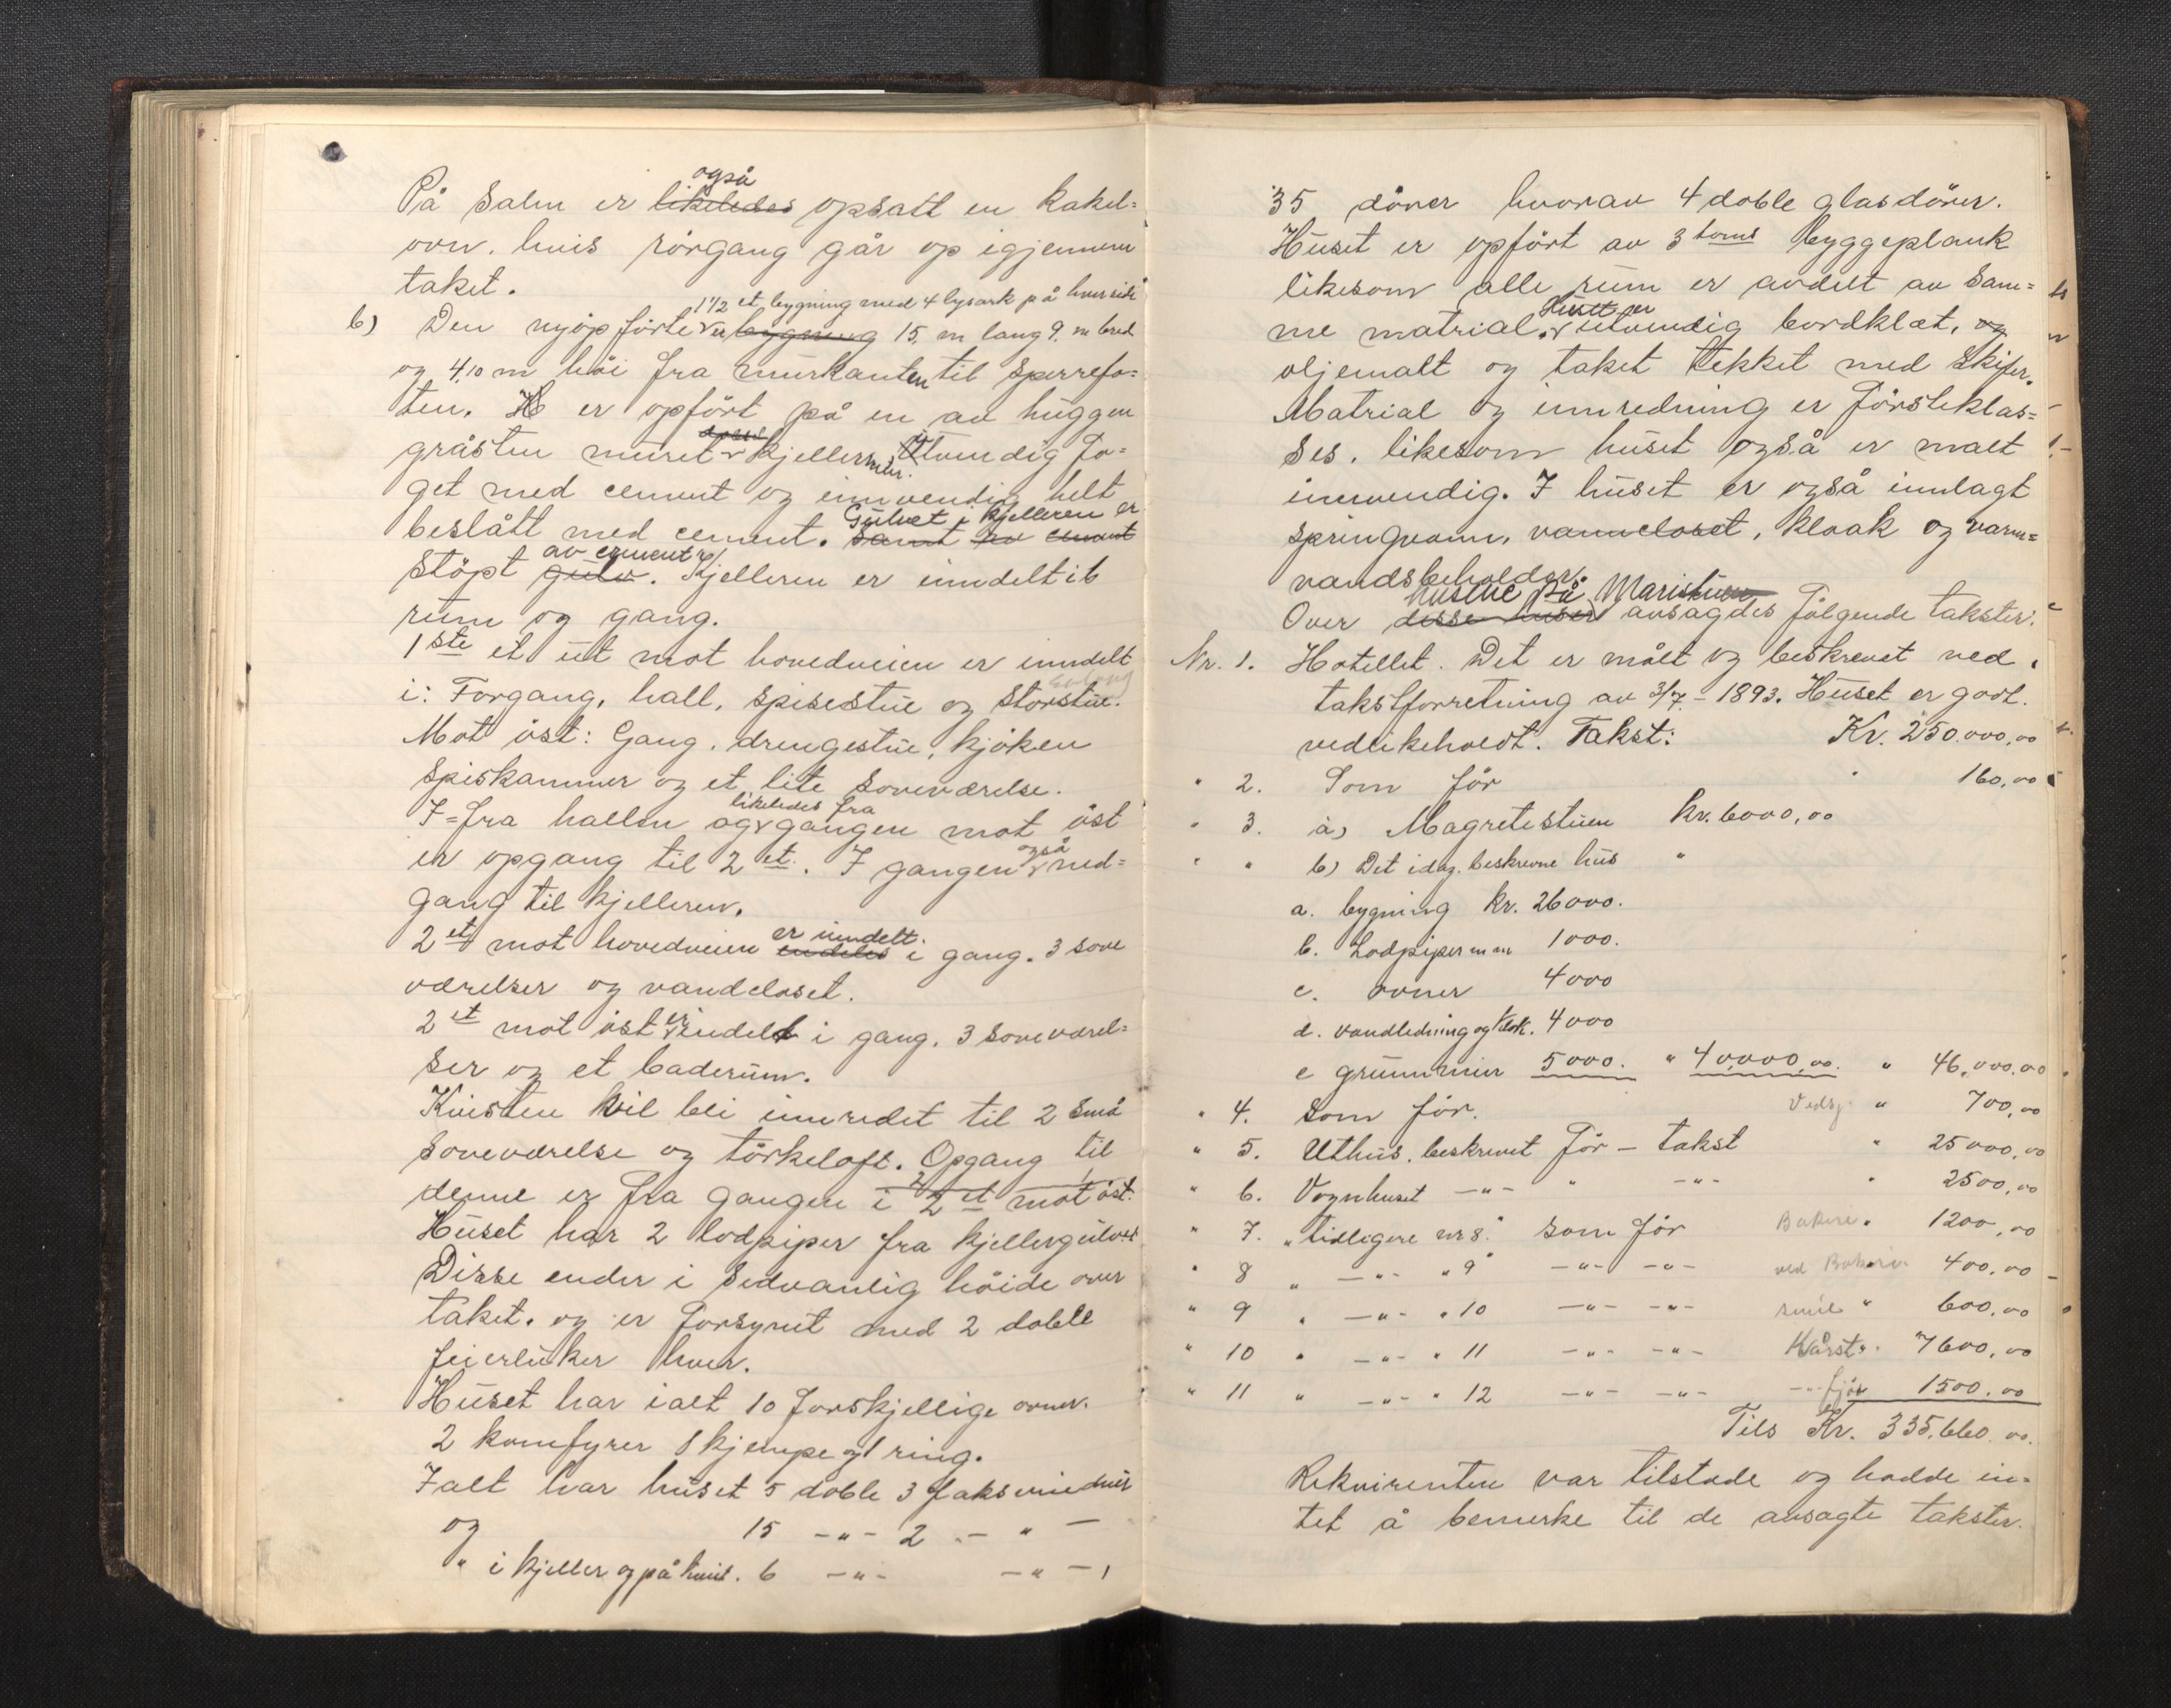 På Salen er likeledes også opsatt en kakel=
ovn. hvis rörgang går op igjennem
taket.
b) Den nyopförte er bygning 1 1/2 et. bygning med 4 lysark på hver side 15. m lang 9. m bred
og 4,10 m höi fra murkanten til Sperrefo=
ten. H er opfört på en av huggen
gråsten muret kjellermur. Utvendig fo=
get med cement og innvendig helt
beslått med cement. Samt av cement Gulvet i kjelleren er
Stöpt gulv. av cement Kjelleren er inndelt i 6
rum og gang.
1ste et ut mot hovedveien er inndelt
i: Forgang, hall, Spisestue og Storstue.
Mot öst: Gang, drengestue, kjöken
Spiskammer og et lite Soveværelse.
I=fra hallen og likeledes fra gangen mot öst
er opgang til 2 et. I gangen også ned=
gang til kjelleren.
2 et mot hovedveien endeles er inndelt i gang. 3 Sove
værelser og vandcloset.
2 et mot öst er indelt i gang, 3 Soveværel=
Ser og et baderum.
Kvisten vil bli innredet til 2 Små
Soveværelse og törkeloft. Opgang til
denne er fra gangen i 2 et mot öst.
Huset har 2 lodpiper fra kjellergulvet
Disse ender i Sedvanlig höide over
taket. og er forsynet med 2 doble
feierluker hver.
Huset har ialt 10 forskjellige ovner.
2 komfyrer 1 kjempe og 1 ring.
Ialt har huset 5 doble 3 faks vinduer
og 15 -"- 2 - " -
" i kjeller og på kvist. 6 -"- -"- 1
35 dörer hvorav 4 doble glasdörer.
Huset er opfört av 3 toms byggeplank
likesom alle rum er avdelt av Sam=
me matrial. Huset er utvendig bordklæt, og
oljemalt og taket tekket med Skifer.
Matrial og innredning er förstekla­s=
ses. likesom huset også er malt
innvendig. I huset er også innlagt
Springvann, vanncloset, kloak og varm=
vandsbeholder.
Over disse huser husene På Maristuen avsagdes fölgende takster:
Nr. 1. Hotellet. Det er målt og beskrevet ved
takstforretning av 3/7 - 1893. Huset er godt.
vedlikeholdt. Takst: Kr. 250.000,00
" 2. Som för " 160,00
" 3. a) Magretestuen Kr. 6000,00
" " b) Det idag. beskrevne hus "
a. bygning Kr. 26000.
b. Lodpiper m m 1000.
c. ovner 4000
d. vandledning og klok. 4000
e grunnmur 5000. " 40000,00. " 46,000,00
" 4. Som för. Vedsj. " 700,00
" 5. Uthus. beskrevet För - takst " 25000,00
" 6. Vognhuset -"- " -"- " 2500,00
" 7. "tidligere nr 8." Som för Bakeri " 1200,00
" 8 " -"- " 9" -"- -"- ved Bakeri 400,00
" 9 " -"- " 10 -"- -"- smie " 600,00
" 10 " -"- " 11 -"- -"- Kårst. " 7600,00
" 11 " -"- " 12 -"- -"- -"- fjös 1500.00
Tils Kr. 335.660.00.
Rekvirenten var tilstede og hadde in=
tet å bemerke til de avsagte takster.